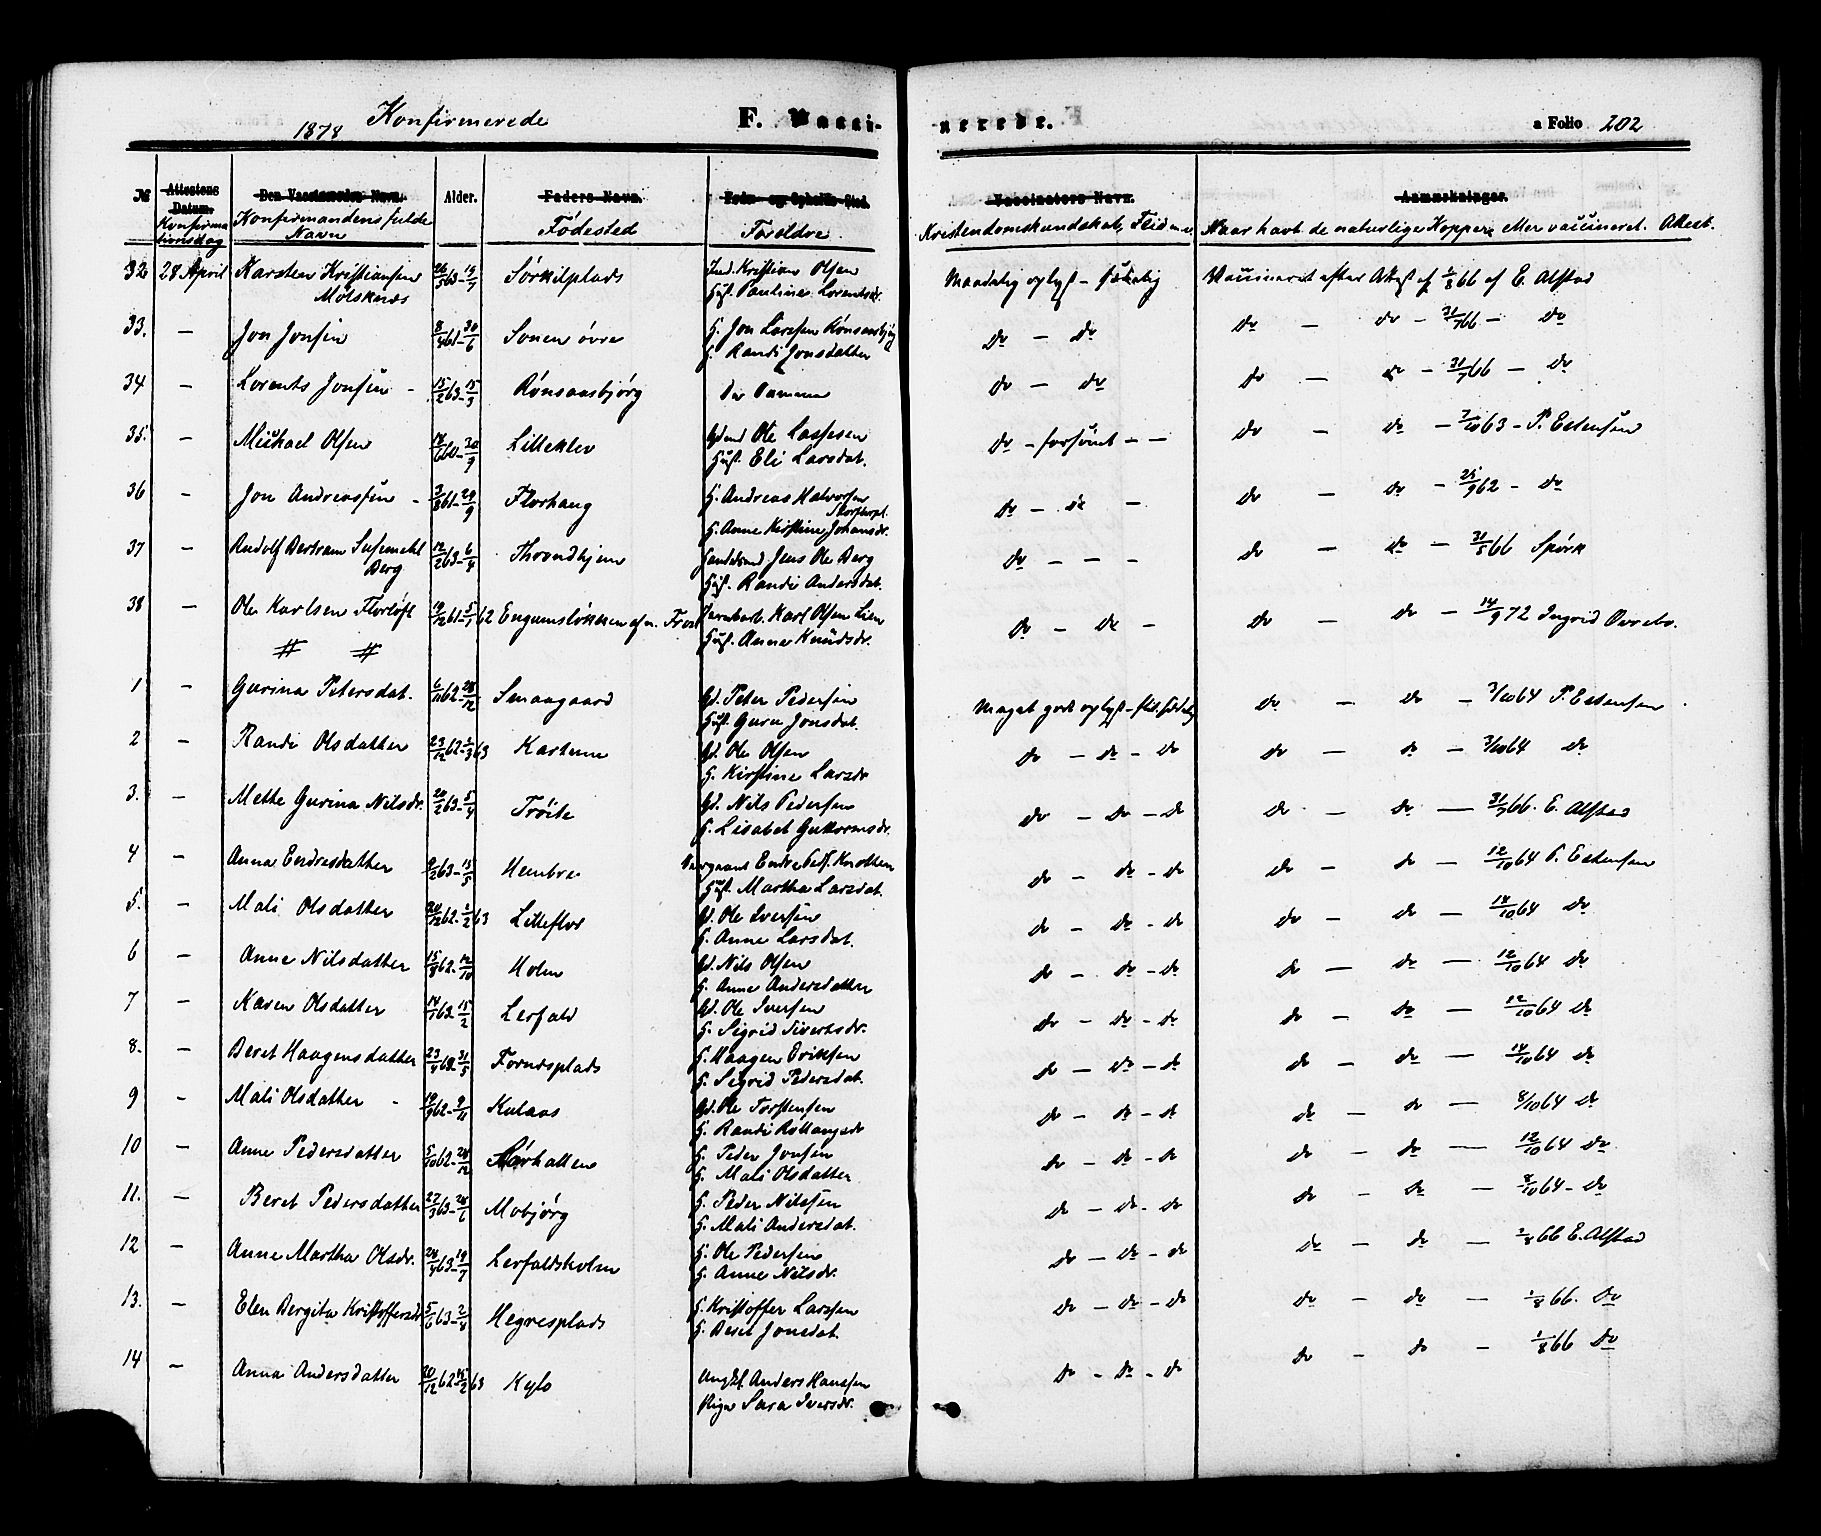 1878 Konfirmerede F. Vacci-nerede. a Folio 202
№ Attestens Datum. Den Vaccineredes Navn. Alder. Faders Navn. Føde- og Opholds-Sted. Vaccinators Navn. Anmerkninger.
Konfirmationsdag Konfirmandens fulde Navn Fødested Foreldre Kristendomskundskab, Flid m Naar havt de naturlige Kopper eller vaccineret. Attest.
32 28 April Karsten Kristiansen 26/5 63 - 19/7 Sørkilplads Ind. Kristian Olsen Maadelig oplyst - sædelig Vaccineret efter Attest af 1/8 66 af E. Alstad
Molsknes Hust. Pauline Lorentsdr.
33. - Jon Jonsen 8/4 61 - 30/6 Sonen øvre G. Jon Larssen Rønsaasbjørg do - do do - do - 31/7 66 - do
G. Randi Jonsdatter
34 - Lorents Jonsen - 15/2 63 - 15/3 Rønsaasbjørg De samme do - do do - do - 31/7 66 - do
35. - Michael Olsen 14/6 60 - 30/9 Litleklev Gdmd Ole Lassesen do - forsømt - - do - do - 7/10 63 - P. Estensen
Hust. Eli Larsdat.
36 - Jon Andreassen - 3/8 61 - 29/9 Florhaug G. Andreas Halvorsen do - do - do - do - 25/9 62 - do
G. Anne Kirstine Johansdr.
37 - Rudolf Bertram Susemihl 14/2 63 - 6/4 Throndhjem Handelsmd Jens Ole Berg do - - - do - do - 31/5 66 Spørk
Berg Hust. Randi Andersdat.
38 - Ole Karlsen Florløft 19/12 61 - 5/1 62 Engumsløkken af n. Frost Jernbarb. Karl Olsen Lien do - do - do - do - 14/9 72 Ingrid Øvrebo.
# # Hust. Anne Knudsdr.
1 - Gurina Petersdat. 6/11 62 - 28/12 Smaagaard Gd. Peter Pedersen Meget godt oplyst - flid. sædelig do - do - 3/10 64 P. Estensen
Hust Guru Jonsdat.
2 - Randi Olsdatter 23/12 62 - 1/3 63 Kartume Gd. Ole Olsen do - do - do do - do - 3/10 64 do
G. Kirstine Larsdr
3. - Mette Gurina Nilsdr. 20/2 63 - 5/4 Trøite Gd. Nils Pedersen do - do - do do - do - 31/7 66. E. Alstad
G. Lisabet Guttormsdr.
4 - Anna Endresdatter 9/2 63 - 15/5 Hembre Endre Peds. Knothem do - do - do do - do - 12/10 64 P. Estensen
Hust. Martha Larsdat.
5. - Mali Olsdatter 20/12 62 - 1/2 63 Litleflor Gd. Ole Iversen do - do - do do - do - 14/10 64 do
G. Anne Larsdat.
6 - Anne Nilsdatter 15/8 62 - 12/10 Holm Gd. Nils Olsen do - do - do do - do - 12/10 64 do
G. Anne Andersdatter
7 - Karen Olsdatter 14/1 63 15/2 Lerfald Gd. Ole Iversen do - do - do do - do - 12/10 64 do
G. Sigrid Sivertsdr.
8. - Beret Haagensdatter 23/4 63 - 31/5 Fornesplads G. Haagen Eriksen do - do - do do - do - 14/10 64 do
G. Sigrid Pedersdat.
9 - Mali Olsdatter - 19/9 62 - 9/11 Kulaas Gd. Ole Torstensen do - do - do do - do - 8/10 64 do
G. Randi Rollaugsdr
10 - Anne Pedersdatter 5/10 62 - 28/12 Størhatten G. Peder Jonsen do - do - do do - do - 12/10 64 do
G. Mali Olsdatter
11. - Beret Pedersdatter 27/3 63 - 28/6 Mobjørg G. Peder Nilssen do - do - do do - do - 8/10 64 - do
G. Mali Andersdat.
12 - Anne Martha Olsdr. 24/4 63 - 19/7 Lerfaldsholm G. Ole Pedersen do - do - do do - do - 1/8 66 E. Alstad
G. Anne Nilsdr.
13. - Elen Bergita Kristoffersdr 5/6 63 - 2/8 Hegresplads G. Kristoffer Larssen do - do - do do - do - 1/8 66. do
G. Beret Jonsdat.
14 - Anna Andersdatter 20/12 62 15/2 63 Kylo Ungkl. Anders Hanssen do - do - do do - do - 1/8 66 do
Pige Sara Iversdr.